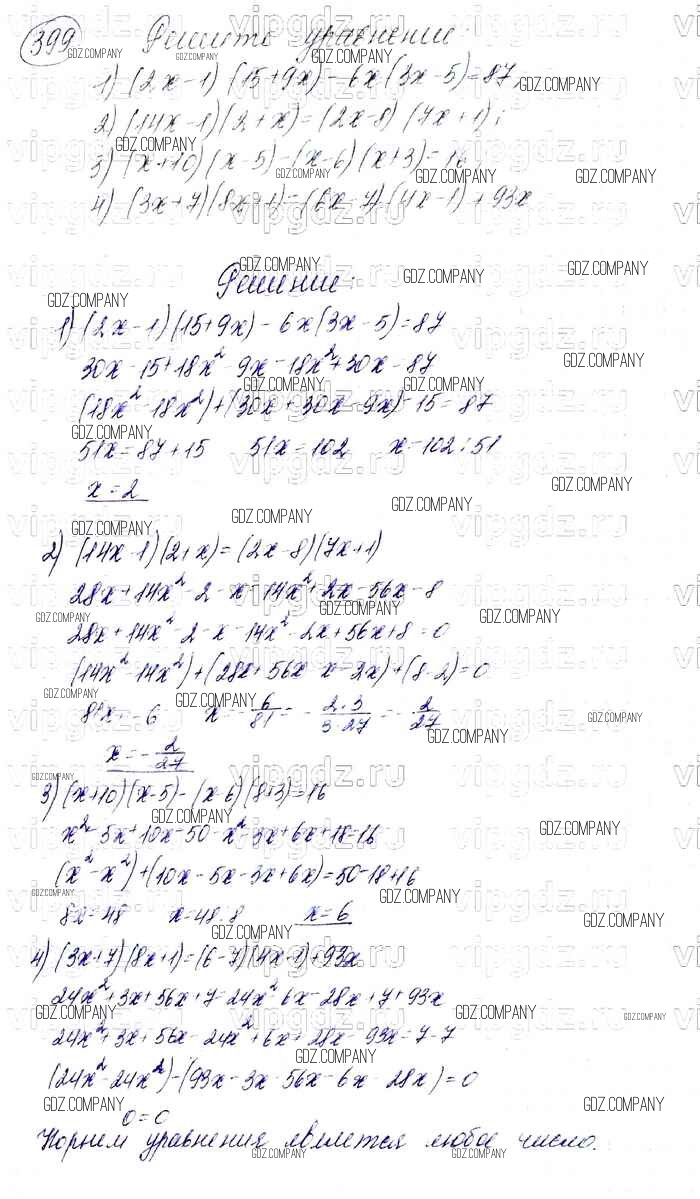 399 Решите уравнение:
1) (2x-1)(15+9x)-6x(3x-5)=87;
2) (14x-1)(2+x)=(2x-8)(7x+1);
3) (x+10)(x-5)-(x-6)(x+3)=16;
4) (3x+7)(8x+1)=(6x-7)(4x-1)+93x
Решение:
1) (2x-1)(15+9x)-6x(3x-5)=87
30x-15+18x²-9x-18x²+30x=87
(18x²-18x²)+(30x+30x-9x)-15=87
51x=87+15 51x=102 x=102:51
x=2
2) (14x-1)(2+x)=(2x-8)(7x+1)
28x+14x²-2-x=14x²+2x-56x-8
28x+14x²-2-x-14x²-2x+56x+8=0
(14x²-14x²)+(28x+56x-x-2x)+(8-2)=0
81x=-6 x=-6/81=-2·3/3·27=-2/27
x=-2/27
3) (x+10)(x-5)-(x-6)(8+3)=16
x²-5x+10x-50-x²-3x+6x+18=16
(x²-x²)+(10x-5x-3x+6x)=50-18+16
8x=48 x=48:8 x=6
4) (3x+7)(8x+1)=(6-7)(4x-1)+93x
24x²+3x+56x+7=24x²-6x-28x+7+93x
24x²+3x+56x-24x²+6x+28x-93x=7-7
(24x²-24x²)-(93x-3x-56x-6x-28x)=0
0=0
Корнем уравнения является любое число.
GDZ.COMPANY
vipgdz.ru